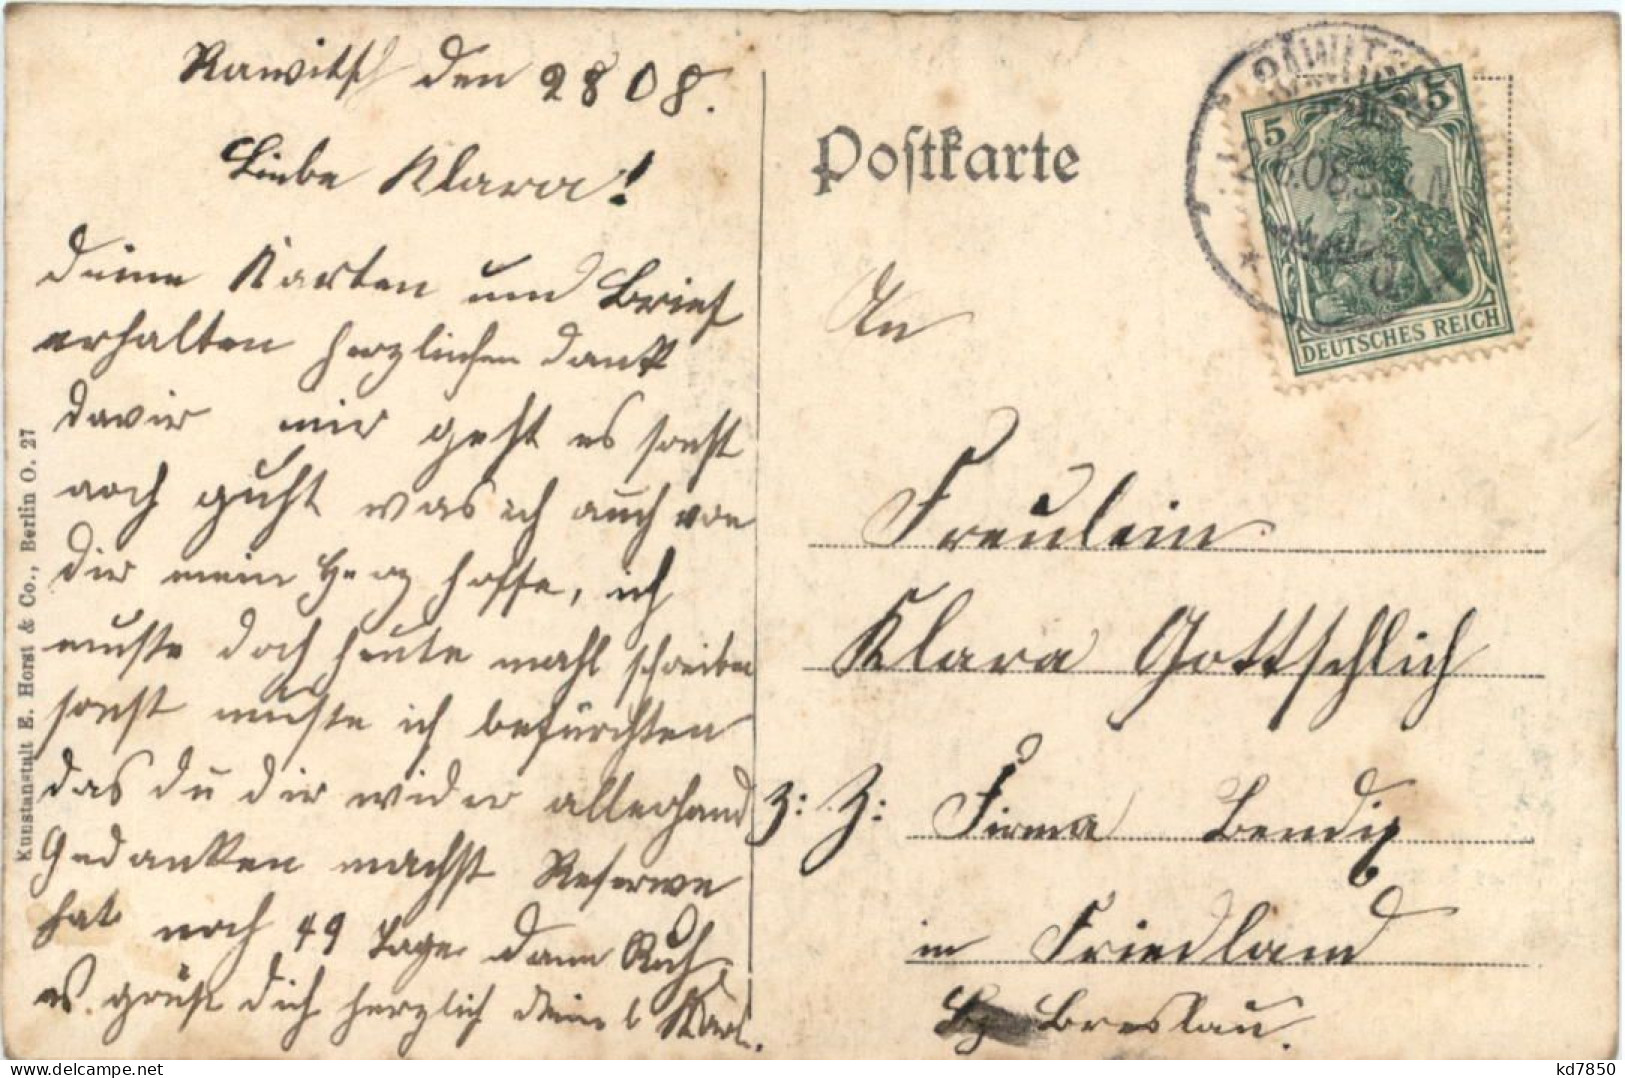 Rawitsch den 2 8 08.
Liebe Klara!
Deine Karten und Brief
erhalten herzlichen Dank
davir mir geht es sonst
noch guht was ich auch von
dir mein Herz hoffe, ich
muste doch heute mahl schreiben
sonst müste ich befürchten
das du dir wider allerhand
Gedanken machst Reserwe
hat noch 49 Tage dann Ruh,
es grüst dich herzlich dein l Karl.
Kunstanstalt E. Horst & Co., Berlin O. 27
Postkarte
RAWITSCH
5 5
DEUTSCHES REICH
An
Freulein
Klara Gottschlich
z: Z: Firma Bendix
in Friedland
Bz Breslau.
kd7850